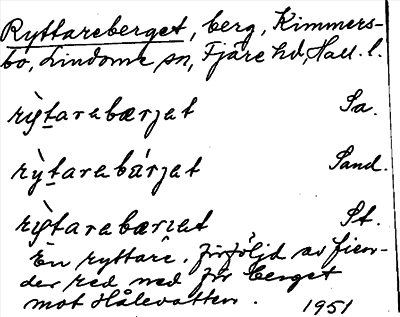 Ryttareberget, berg, Kimmers-
bo, Lindome sn, Fjäre hd, Hall. l.
rỳtarabærjet Sa.
rỳtarabárjet Sand.
rỳtarabærjet St.
En ryttare, förföljd av fien-
der red ned för berget
mot Hålevatten.
1951